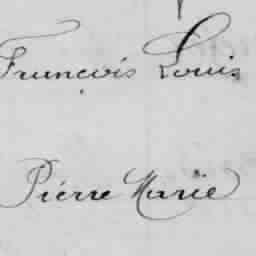 François Louis
Pierre Marie